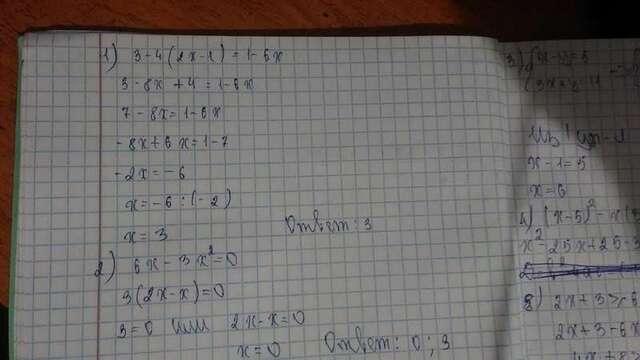 1) 3-4(2x-1)=1-6x
3-8x+4=1-6x
7-8x=1-6x
-8x+6x=1-7
-2x=-6
x=-6:(-2)
x=3
Ответ: 3
2) 6x-3x²=0
3(2x-x)=0
3=0 или 2x-x=0
x=0 Ответ: 0; 3
x-1=5
x=6
8) 2x+3>
2x+3-6x